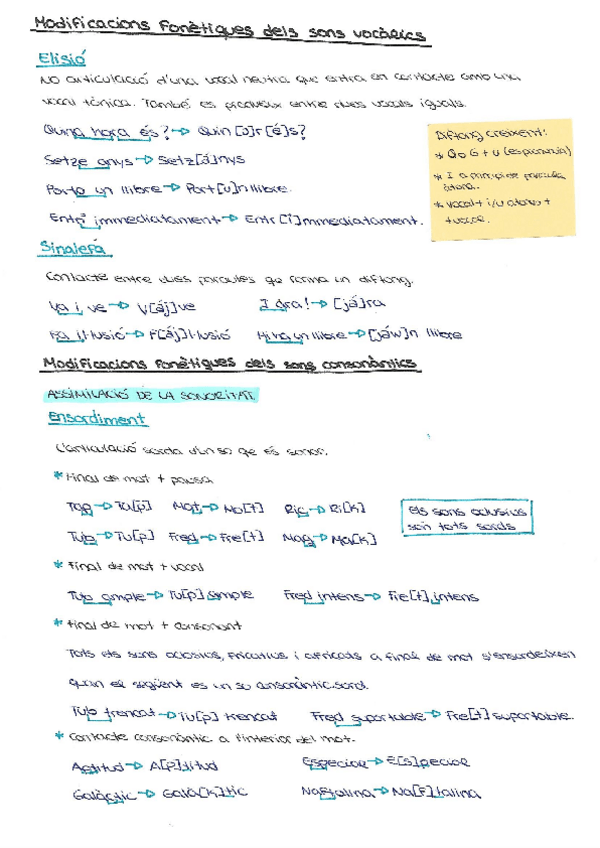 Modificacions fonètiques dels sons vocàlics
Elisió
No articulació d'una vocal neutra que entra en contacte amb una
vocal tònica. També es produeix entre dues vocals iguals.
Quina hora és? → Quin [ɔ]r [é]s?
Setze anys → Setz[á]nys
Porta un llibre → Port[u]n llibre.
Entra immediatament → Entr [i]mmediatament.
Diftong creixent:
* Q o G + U (espanavia)
* I a principi de paraula
àtona.
* Vocal + i/u àtones +
+ vocal.
Sinalefa
Contacte entre dues paraules que forma un diftong.
Va i ve → V[áj]ve
I ara! → [já]ra
Fa il·lusió → F[áj]l·lusió
Hi ha un llibre → [jáw]n llibre
Modificacions fonètiques dels sons consonàntics
ASSIMILACIÓ DE LA SONORITAT
Ensordiment
L'articulació sorda d'un so que és sonor.
* Final de mot + pausa
Tap → Ta[p] Not → No[t] Ric → Ri[k]
Tub → Tu[p] Fred → Fre[t] Mag → Ma[k]
Els sons oclusius
són tots sords
* Final de mot + vocal
Tub ample → Tu[p] ample Fred intens → Fre[t] intens
* Final de mot + consonant
Tots els sons oclusius, fricatius i africats a final de mot s'ensordeixen
quan el següent és un so consonàntic sord.
Tub trencat → Tu[p] trencat Fred suportable → Fre[t] suportable.
* Contacte consonàntic a l'interior del mot.
Aptitud → A[p]titud Especior → E[s]pecior
Galàctic → Galà[k]tic Naftalina → Na[f]talina